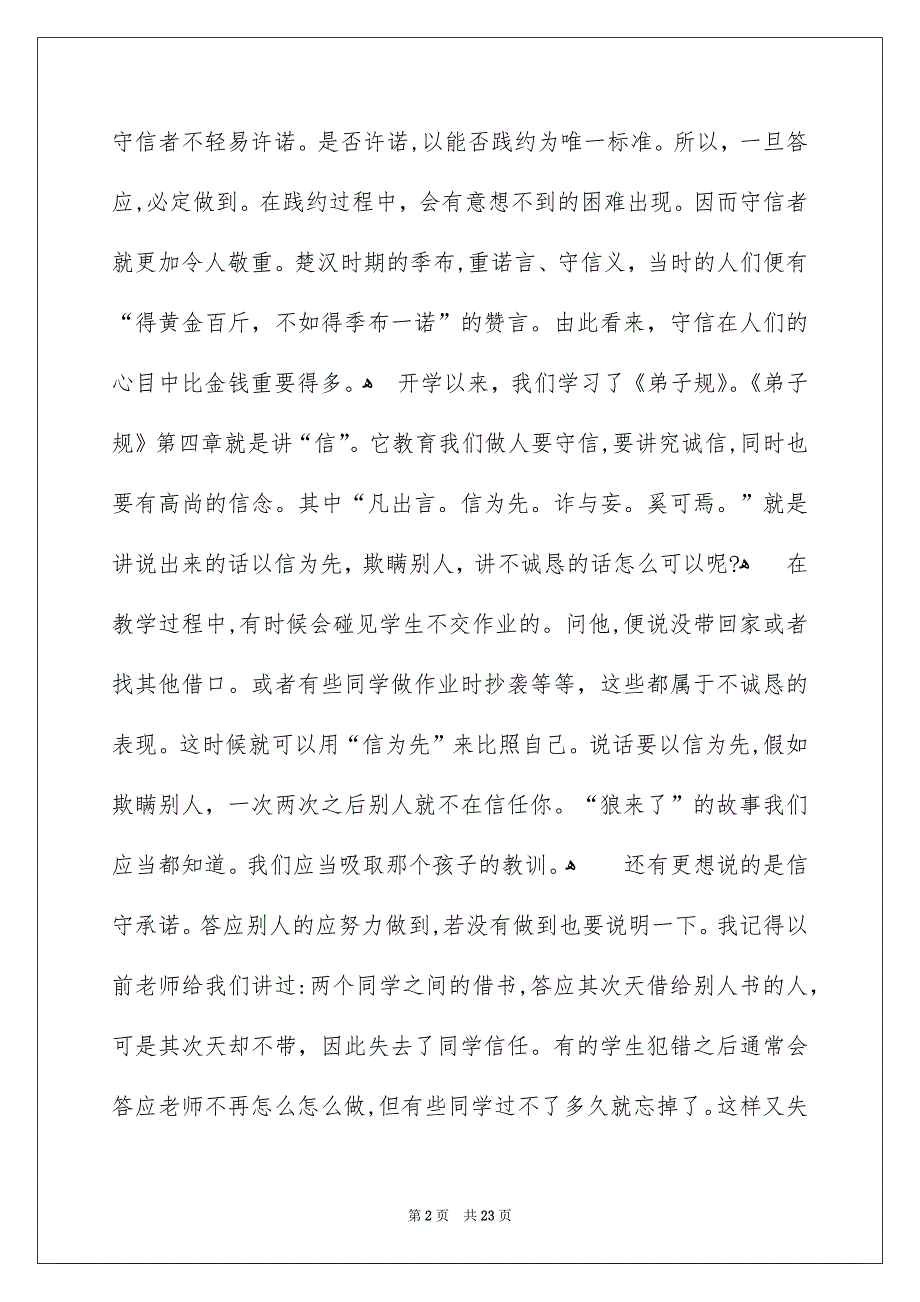 守信者不轻易许诺。是否许诺,以能否践约为唯一标准。所以，一旦答
应,必定做到。在践约过程中，会有意想不到的困难出现。因而守信者
就更加令人敬重。楚汉时期的季布,重诺言、守信义，当时的人们便有
“得黄金百斤，不如得季布一诺”的赞言。由此看来，守信在人们的
心目中比金钱重要得多。ﻫ　开学以来，我们学习了《弟子规》。《弟子
规》第四章就是讲“信”。它教育我们做人要守信,要讲究诚信,同时也
要有高尚的信念。其中“凡出言。信为先。诈与妄。奚可焉。”就是
讲说出来的话以信为先，欺瞒别人，讲不诚恳的话怎么可以呢?ﻫ　在
教学过程中,有时候会碰见学生不交作业的。问他,便说没带回家或者
找其他借口。或者有些同学做作业时抄袭等等，这些都属于不诚恳的
表现。这时候就可以用“信为先”来比照自己。说话要以信为先,假如
欺瞒别人，一次两次之后别人就不在信任你。“狼来了”的故事我们
应当都知道。我们应当吸取那个孩子的教训。ﻫ　　还有更想说的是信
守承诺。答应别人的应努力做到,若没有做到也要说明一下。我记得以
前老师给我们讲过:两个同学之间的借书,答应其次天借给别人书的人，
可是其次天却不带，因此失去了同学信任。有的学生犯错之后通常会
答应老师不再怎么怎么做,但有些同学过不了多久就忘掉了。这样又失
第 2 页 共 23 页